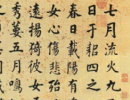 七月流火九
日于耜四之
春日載陽有
女心傷悲殆
遠揚猗彼女
秀葽五月鳴